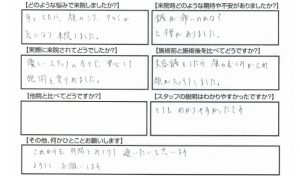 【どのような悩みで来院しましたか?】
年とともに、顔のシワ、たるみが
気になり来院しました。
【来院時どのような期待や不安がありましたか?】
鍼が痛いのかな?
と不安がありました。
【実際に来院されてどうでしたか?】
優しいスタッフの方々で、安心して
施術を受けれました。
【施術前と施術後を比べてどうですか?】
美容鍼をしたら顔のむくみがとれ
顔がスッキリしました。
【他院と比べてどうですか?】
【スタッフの説明はわかりやすかったですか?】
とてもわかりやすかったです
【その他、何かひとことお願いします】
これからも時間をみつけて通いたいと思います
よろしくお願いします